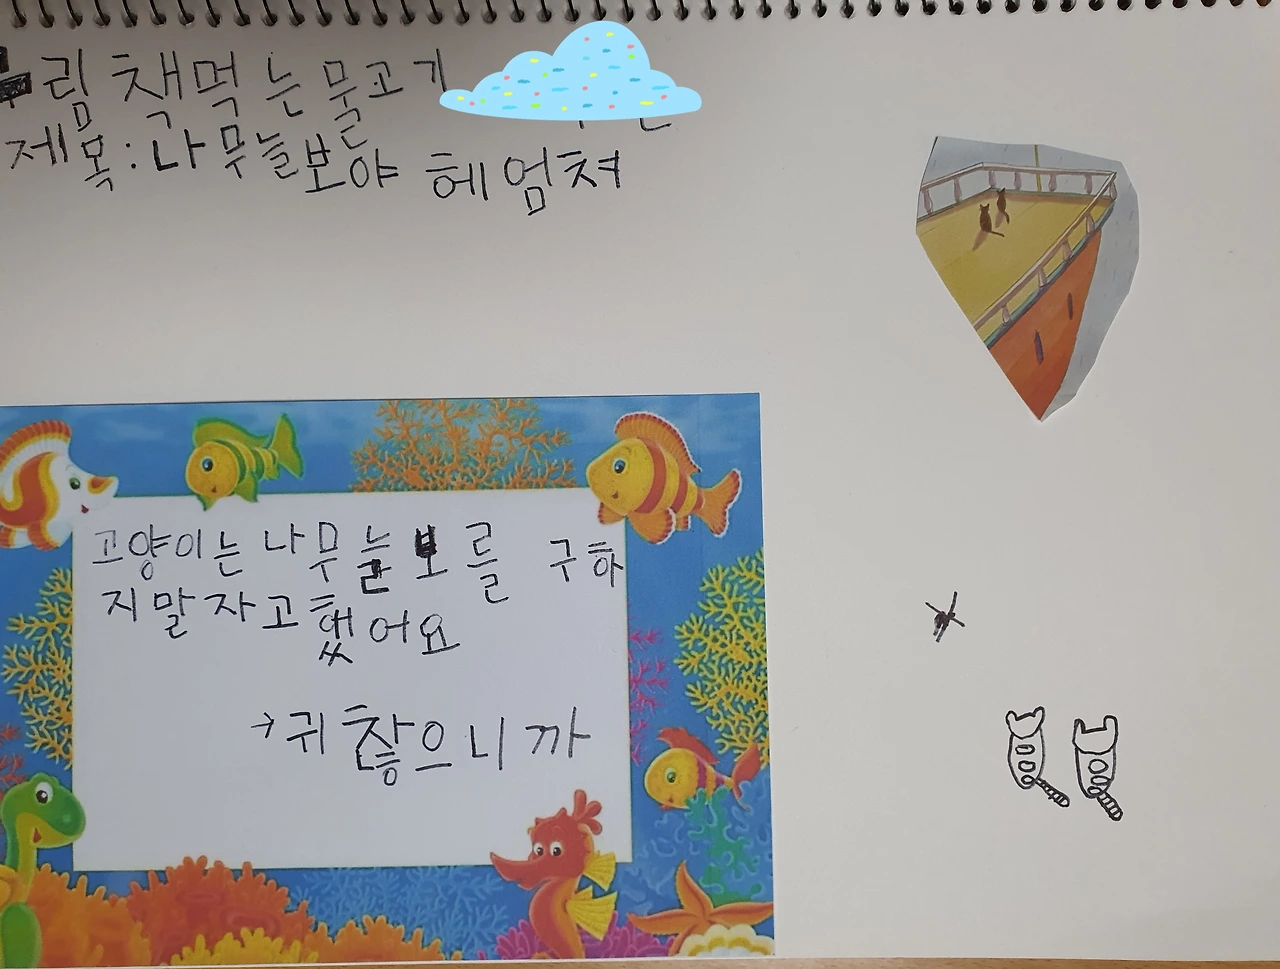 누림 책먹는물고기
제목:나무늘보야 헤엄쳐
고양이는 나무늘보를 구하
지말자고했어요
→귀찮으니까